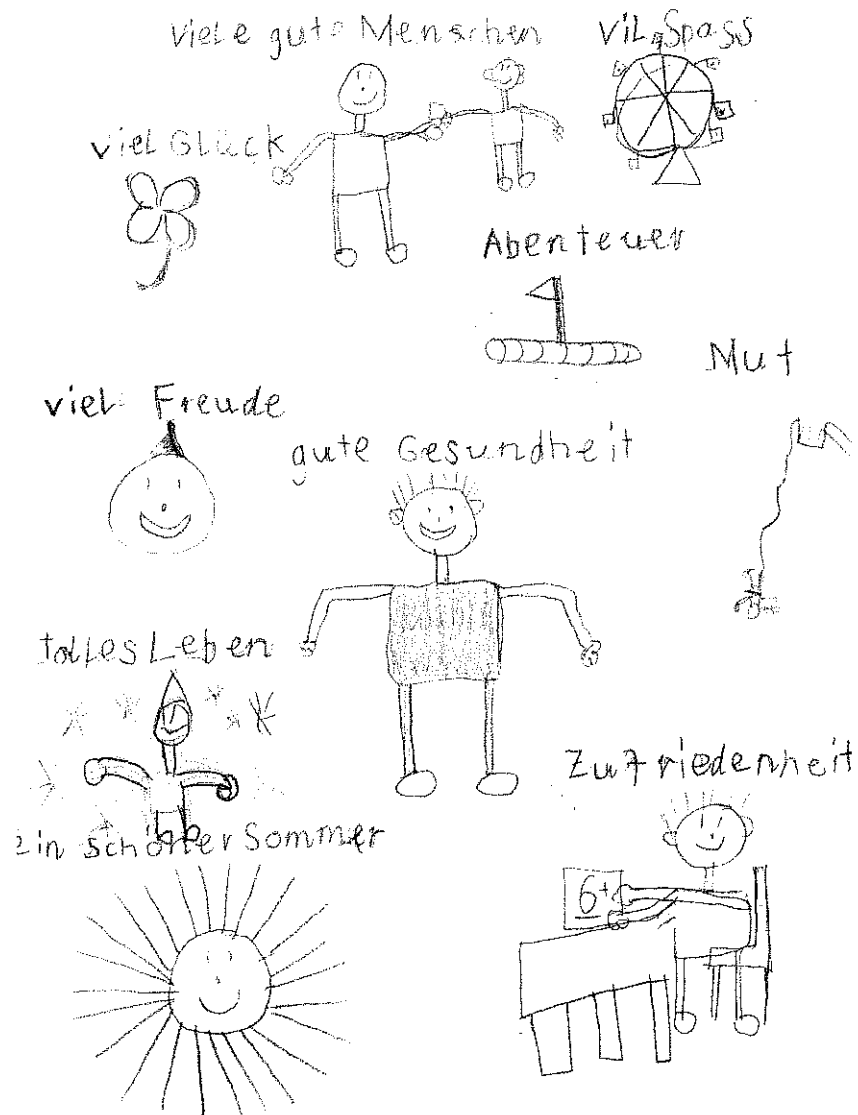 viele gute Menschen
vil Spass
viel Glück
Abenteuer
Mut
viel Freude
gute Gesundheit
tolles Leben
Zufriedenheit
6+
ein schöner Sommer